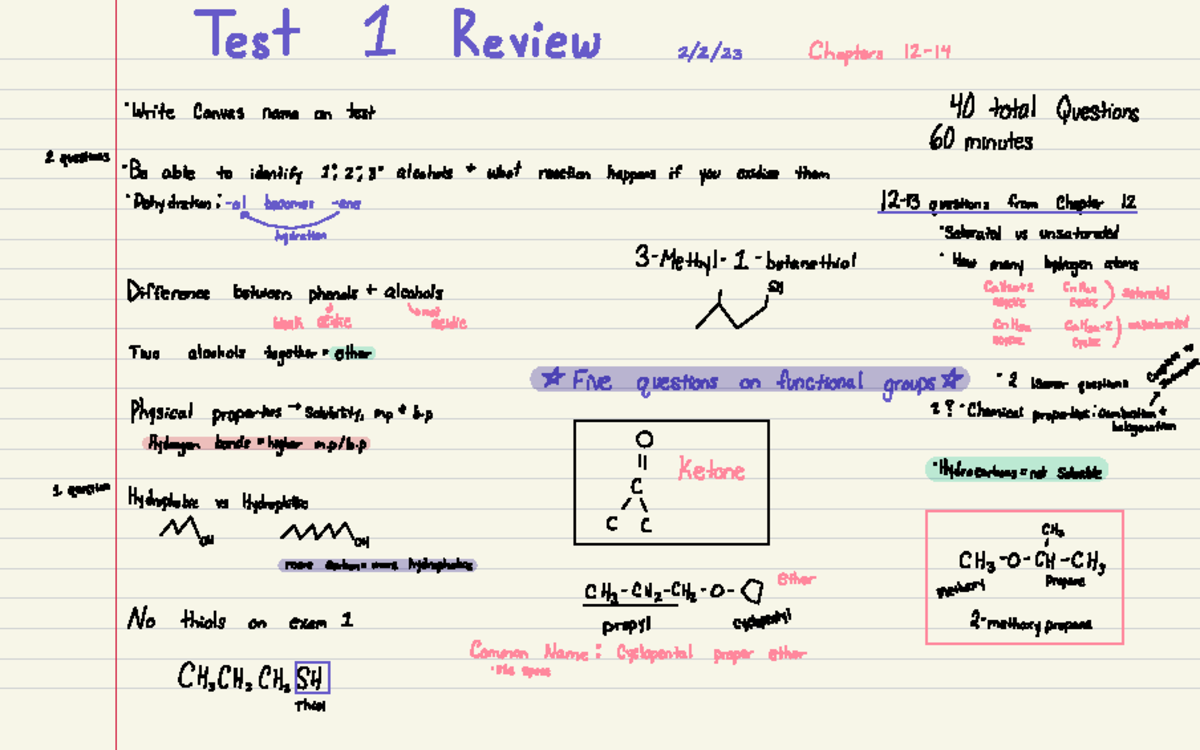 Test 1 Review 2/2/23 Chapters 12-14
•Write Canvas name on test
2 questions
•Be able to identify 1°, 2°, 3° alcohols + what reaction happens if you oxidize them
•Dehydration: -ol becomes -ene
hydration
Difference between phenols + alcohols
weak acidic
not acidic
Two alcohols together = ether
Physical properties → Solubility, mp + b.p
Hydrogen bonds = higher m.p/b.p
1 question
Hydrophobic vs Hydrophilic
OH
OH
more carbon = more hydrophobic
No thiols on exam 1
CH3CH2CH2SH
Thiol
3-Methyl-1-butanethiol
SH
☆ Five questions on functional groups ☆
O
||
C
C C
Ketone
CH3-CH2-CH2-O-
ether
propyl
cyclopentyl
Common Name: Cyclopental proper ether
40 total Questions
60 minutes
12-13 questions from Chapter 12
•Saturated vs unsaturated
•How many hydrogen atoms
CnH2n+2 CnH2n ) saturated
acyclic cyclic
CnH2n CnH2n-2 ) unsaturated
acyclic cyclic
•2 isomer questions
2? •Chemical properties: combustion +
halogenation
•Hydrocarbons = not Soluble
CH3
CH3-O-CH-CH3
methoxy
Propane
2-methoxy propane